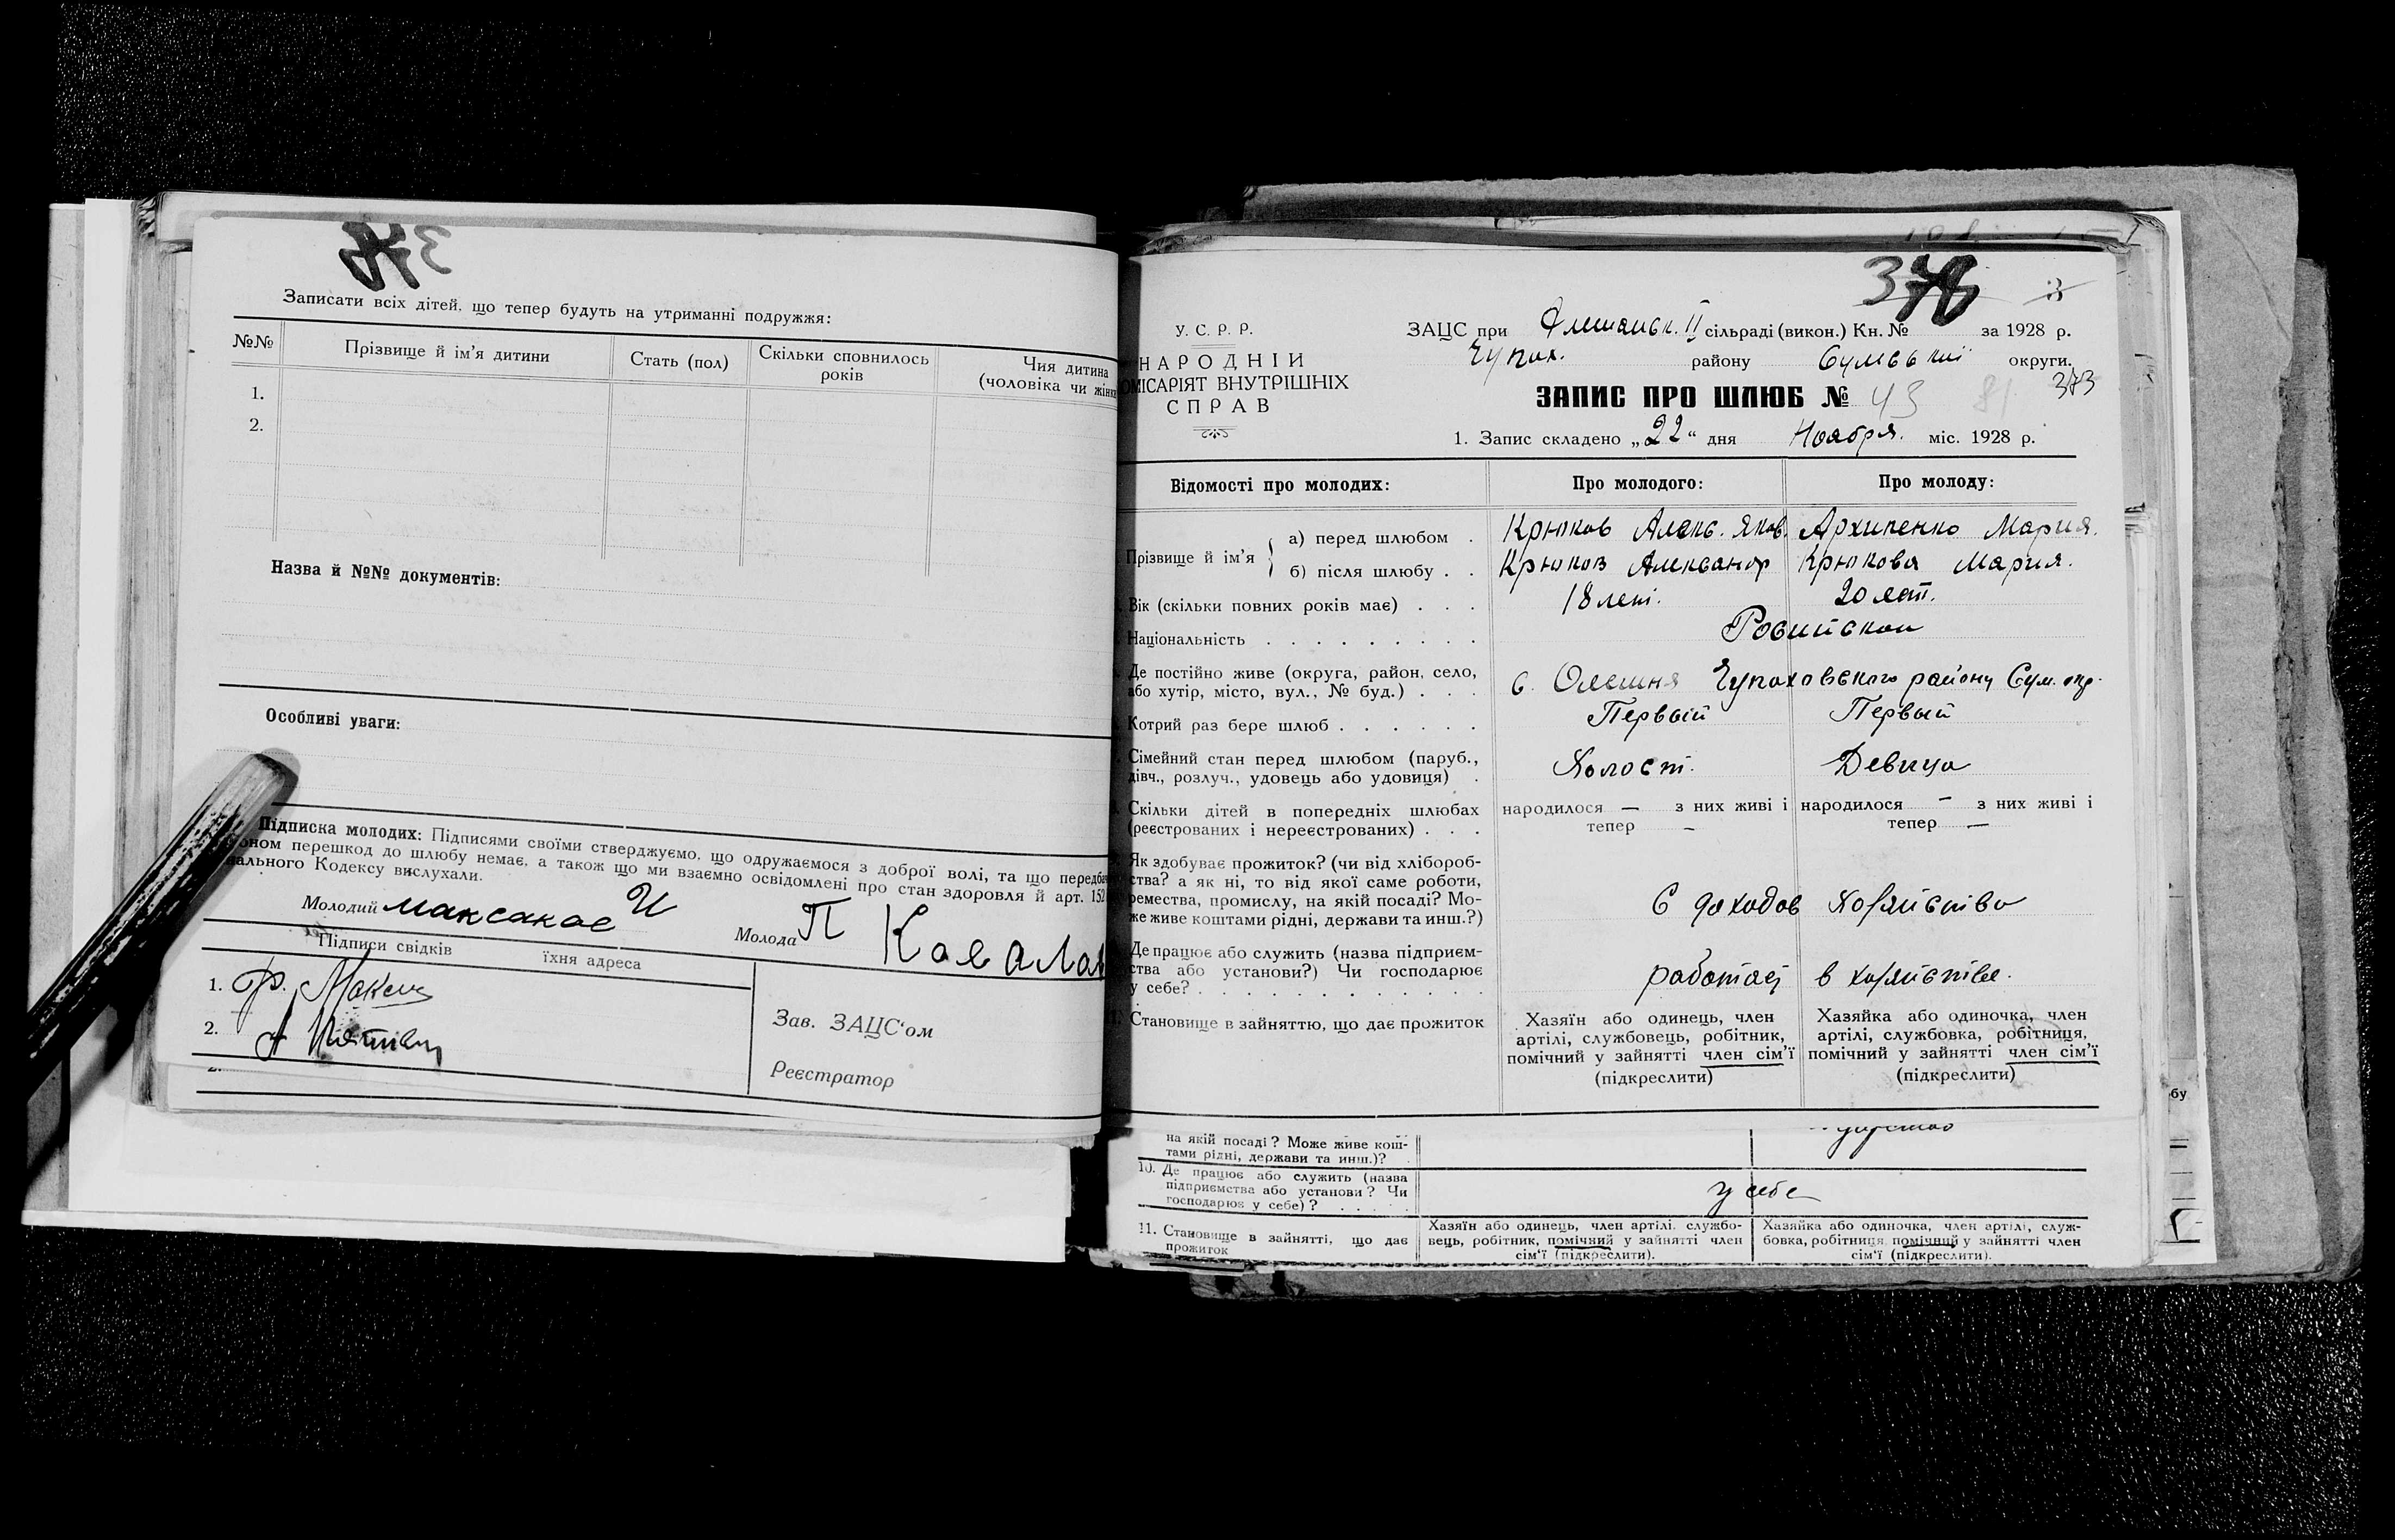 Записати всіх дітей, що тепер будуть на утриманні подружжя:
№№ Прізвище й ім'я дитини Стать (пол) Скільки сповнилось років Чия дитина (чоловіка чи жінки
1.
2.
Назва й №№ документів:
Особливі уваги:
Підписка молодих: Підписями своїми стверджуємо, що одружаємося з доброї волі, та що передба
оном перешкод до шлюбу немає, а також що ми взаємно освідомлені про стан здоровля й арт. 152
вального Кодексу вислухали.
Молодий Максакос И Молода П Ковалов
Підписи свідків їхня адреса
1. Ф.
2. А
Зав. ЗАЦС'ом
Реєстратор
378 3
У. С. Р. Р.
НАРОДНІЙ
ОМІСАРІЯТ ВНУТРІШНІХ
СПРАВ
ЗАЦС при II сільраді (викон.) Кн. № за 1928 р.
Чупах. району Сумської округи.
373
ЗАПИС ПРО ШЛЮБ № 43 81
1. Запис складено „22" дня Ноября. міс. 1928 р.
Відомості про молодих: Про молодого: Про молоду:
Прізвище й ім'я
а) перед шлюбом . Крюков Алекс. Яков. Архипенко Мария.
б) після шлюбу . . Крюков Александр Крюкова Мария.
Вік (скільки повних років має) . . . 18 лет. 20 лет.
Національність . . . . . . . . . Российской
Де постійно живе (округа, район, село,
або хутір, місто, вул., № буд.) . . . с. Олешня Чупаховского району Сум. окр.
Котрий раз бере шлюб . . . . . . Первый Первый
Сімейний стан перед шлюбом (паруб.,
дівч., розлуч., удовець або удовиця) . Холост. Девица
Скільки дітей в попередніх шлюбах
(реєстрованих і нереєстрованих) . . .
народилося — з них живі і тепер —
народилося — з них живі і тепер —
Як здобуває прожиток? (чи від хлібороб-
ства? а як ні, то від якої саме роботи,
ремества, промислу, на якій посаді? Мо-
же живе коштами рідні, держави та инш.?)
С доходов Хозяйства
Де працює або служить (назва підприєм-
ства або установи?) Чи господарює
у себе? . . . . . . . . . . . .
работает в хозяйстве.
Становище в зайняттю, що дає прожиток
Хазяїн або одинець, член
артілі, службовець, робітник,
помічний у зайнятті член сім'ї
(підкреслити)
Хазяйка або одиночка, член
артілі, службовка, робітниця,
помічний у зайнятті член сім'ї
(підкреслити)
бу
на якій посаді? Може живе кош-
тами рідні, держави та инш.)?
10. Де працює або служить (назва
підприємства або установи? Чи
господарює у себе)? . . . . .
у себе
11. Становище в зайнятті, що дає
прожиток
Хазяїн або одинець, член артілі, службо-
вець, робітник, помічний у зайнятті член
сім'ї (підкреслити).
Хазяйка або одиночка, член артілі, служ-
бовка, робітниця, помічний у зайнятті член
сім'ї (підкреслити).